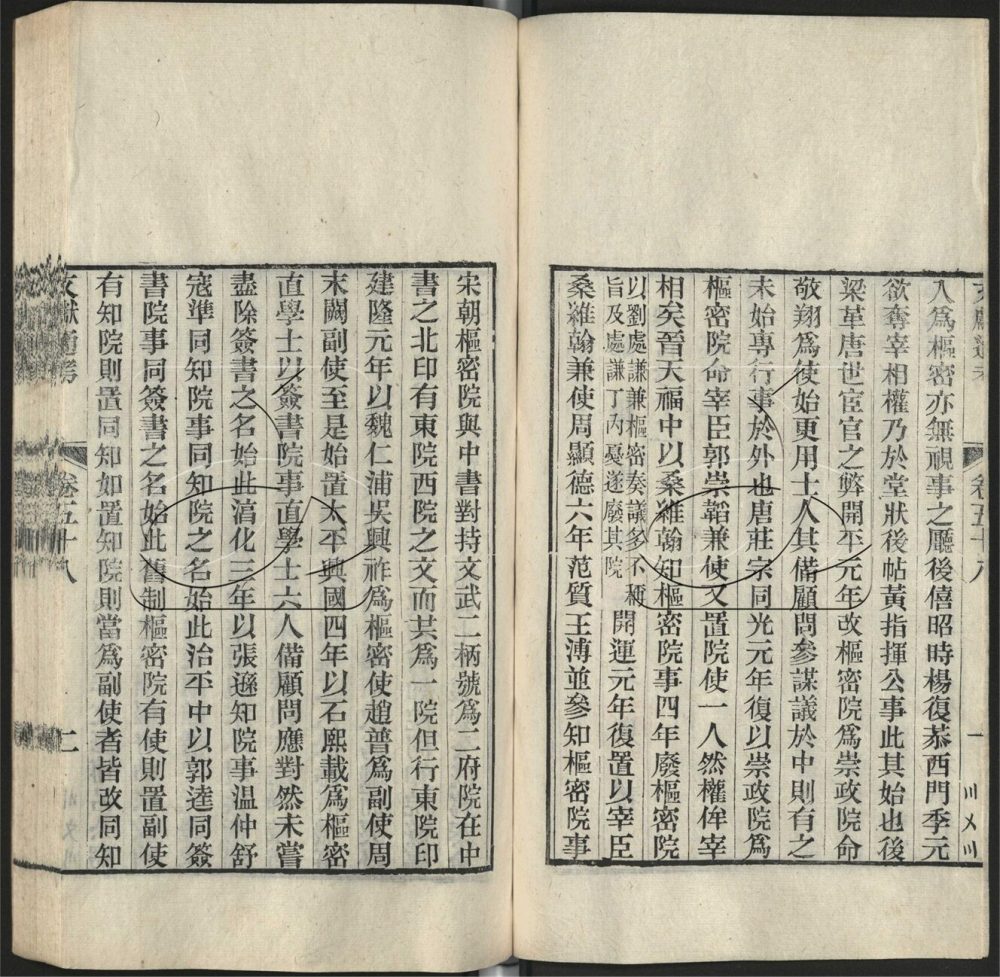 文獻通考 卷五十八 一
人爲樞密亦無視事之廳後僖昭時楊復恭西門季元
欲奪宰相權乃於堂狀後帖黃指揮公事此其始也後
梁革唐世宦官之弊開平元年改樞密院爲崇政院命
敬翔爲使始更用士人其備顧問參謀議於中則有之
未始專行事於外也唐莊宗同光元年復以崇政院爲
樞密院命宰臣郭崇韜兼使又置院使一人然權侔宰
相矣晉天福中以桑維翰知樞密院事四年廢樞密院
以劉處謙兼樞密奏議多不稱
旨及處謙丁內憂遂廢其院
開運元年復置以宰臣
桑維翰兼使周顯德六年范質王溥並參知樞密院事
宋朝樞密院與中書對持文武二柄號爲二府院在中
書之北印有東院西院之文而共爲一院但行東院印
建隆元年以魏仁浦吳興祚爲樞密使趙普爲副使周
末闕副使至是始置太平興國四年以石熙載爲樞密
直學士以簽書院事直學士六人備顧問應對然未嘗
盡除簽書之名始此淳化三年以張遜知院事温仲舒
寇準同知院事同知院之名始此治平中以郭逵同簽
書院事同簽書之名始此舊制樞密院有使則置副使
有知院則置同知如置知院則當爲副使者皆改同知
文獻通考 卷五十八 二